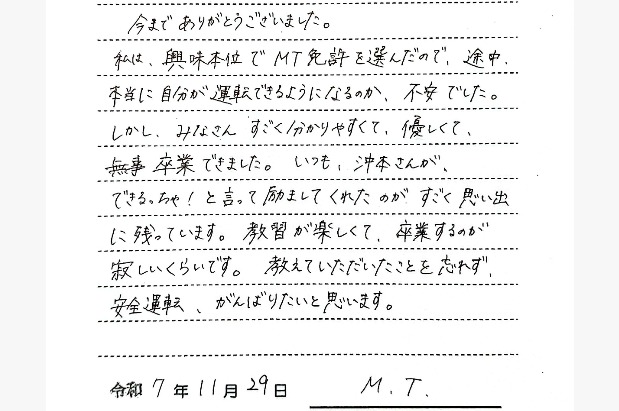 今までありがとうございました。
私は、興味本位でMT免許を選んだので、途中、
本当に自分が運転できるようになるのか、不安でした。
しかし、みなさんすごく分かりやすくて、優しくて、
無事卒業できました。いつも、沖本さんが、
できるっちゃ!と言って励ましてくれたのがすごく思い出
に残っています。教習が楽しくて、卒業するのが
寂しいくらいです。教えていただいたことを忘れず、
安全運転、がんばりたいと思います。
令和7年11月29日 M.T.